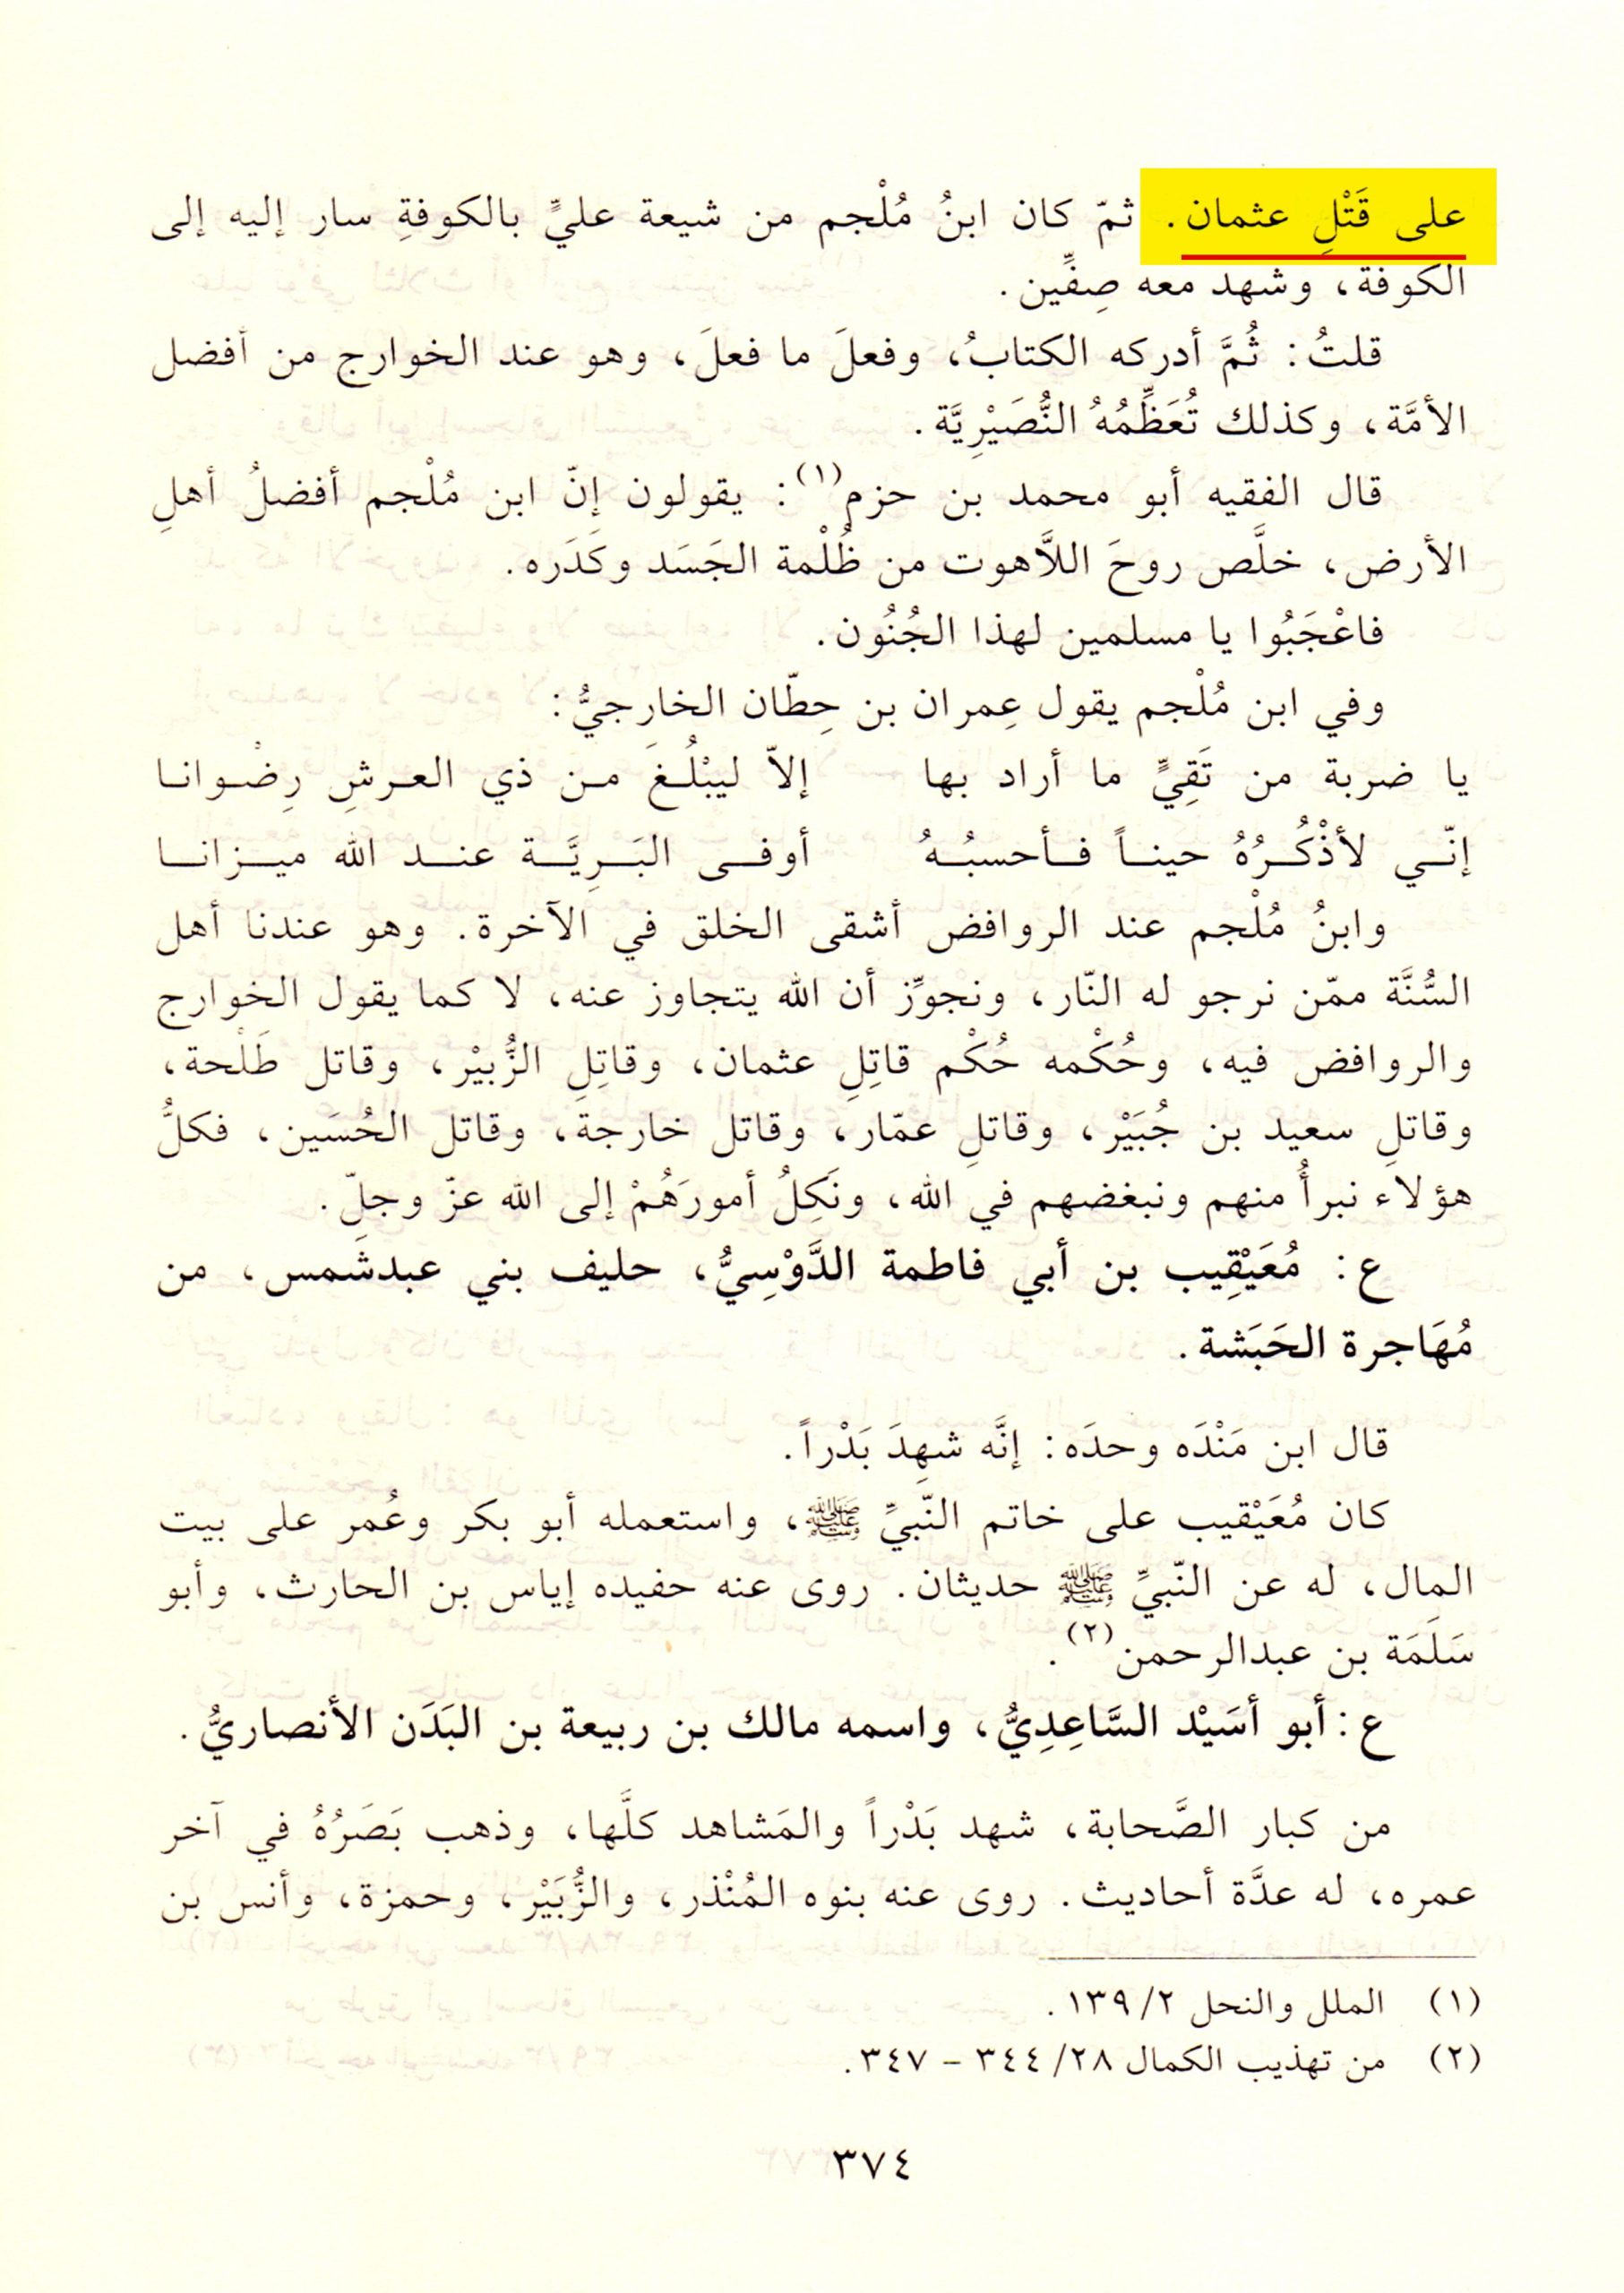 على قَتْلِ عثمان. ثمّ كان ابنُ مُلْجم من شيعة عليٍّ بالكوفةِ سار إليه إلى
الكوفة، وشهد معه صِفِّين.
قلتُ: ثُمَّ أدركه الكتابُ، وفعلَ ما فعلَ، وهو عند الخوارج من أفضل
الأمَّة، وكذلك تُعَظِّمُهُ النُّصَيْرِيَّة.
قال الفقيه أبو محمد بن حزم(١): يقولون إنّ ابن مُلْجم أفضلُ أهلِ
الأرض، خلَّص روحَ اللاَّهوت من ظُلْمة الجَسَد وكَدَره.
فاعْجَبُوا يا مسلمين لهذا الجُنُون.
وفي ابن مُلْجم يقول عِمران بن حِطّان الخارجيُّ:
يا ضربة من تَقِيٍّ ما أراد بها إلاّ ليبْلُغَ من ذي العرشِ رِضْوانا
إنّي لأذْكُرُهُ حيناً فأحسبُهُ أوفى البَرِيَّة عند الله ميزانا
وابنُ مُلْجم عند الروافض أشقى الخلق في الآخرة. وهو عندنا أهل
السُّنَّة ممّن نرجو له النّار، ونجوِّز أن الله يتجاوز عنه، لا كما يقول الخوارج
والروافض فيه، وحُكْمه حُكْم قاتِلِ عثمان، وقاتِلِ الزُّبيْر، وقاتل طَلْحة،
وقاتلِ سعيد بن جُبَيْر، وقاتلِ عمّار، وقاتل خارجة، وقاتل الحُسَين، فكلُّ
هؤلاء نبرأُ منهم ونبغضهم في الله، ونَكِلُ أمورَهُمْ إلى الله عزّ وجلّ.
ع: مُعَيْقِيب بن أبي فاطمة الدَّوْسِيُّ، حليف بني عبدشمس، من
مُهَاجرة الحَبَشة.
قال ابن مَنْدَه وحدَه: إنَّه شهِدَ بَدْراً.
كان مُعَيْقيب على خاتم النّبيِّ ﷺ، واستعمله أبو بكر وعُمر على بيت
المال، له عن النّبيِّ ﷺ حديثان. روى عنه حفيده إياس بن الحارث، وأبو
سَلَمَة بن عبدالرحمن(٢).
ع: أبو أسَيْد السَّاعِدِيُّ، واسمه مالك بن ربيعة بن البَدَن الأنصاريُّ.
من كبار الصَّحابة، شهد بَدْراً والمَشاهد كلَّها، وذهب بَصَرُهُ في آخر
عمره، له عدَّة أحاديث. روى عنه بنوه المُنْذر، والزُّبَيْر، وحمزة، وأنس بن
(١) الملل والنحل ٢/ ١٣٩.
(٢) من تهذيب الكمال ٢٨/ ٣٤٤ – ٣٤٧.
٣٧٤